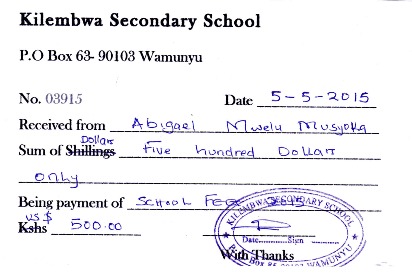 Kilembwa Secondary School
P.O Box 63- 90103 Wamunyu
No. 03915 Date 5-5-2015
Received from Abigael Mwelu Musyoka
Dollars
Sum of Shillings Five hundred Dollars
only
Being payment of School Fee 2015
US $
Kshs 500.00
KILEMBWA SECONDARY SCHOOL
Date Sign
P.O. Box 63-90103 WAMUNYU
With Thanks